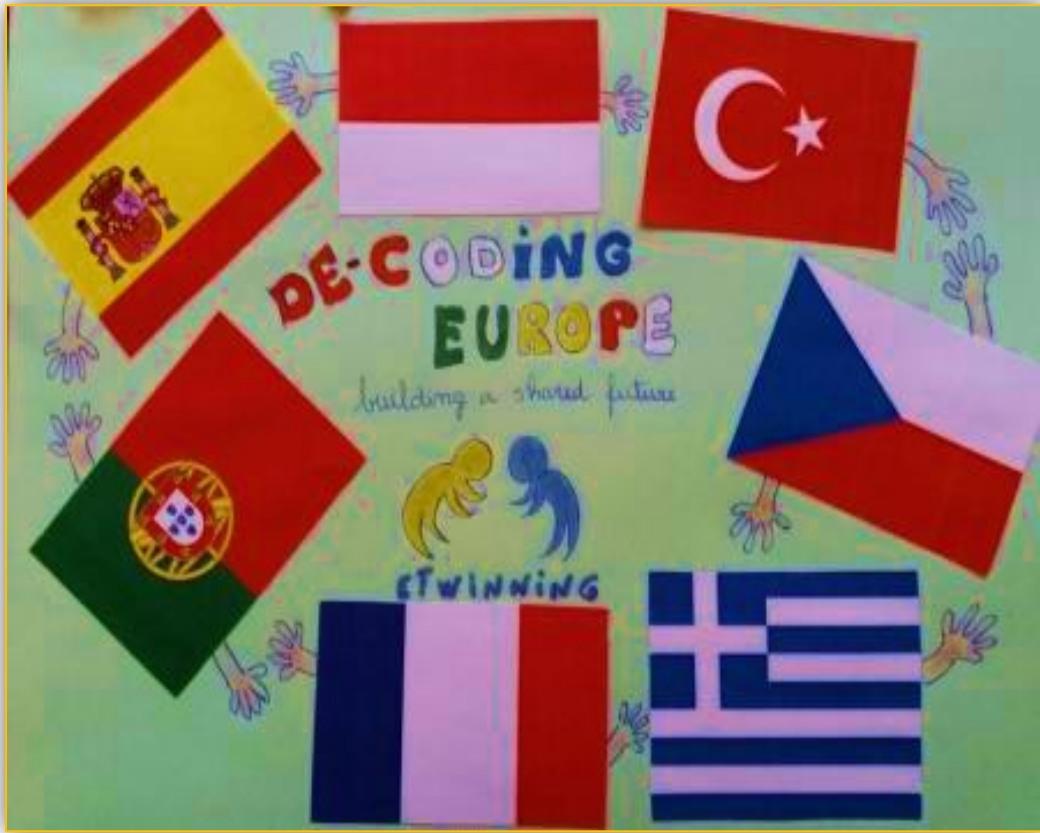 DE-CODiNG
EUROPE
building a shared future
ETWiNNiNG